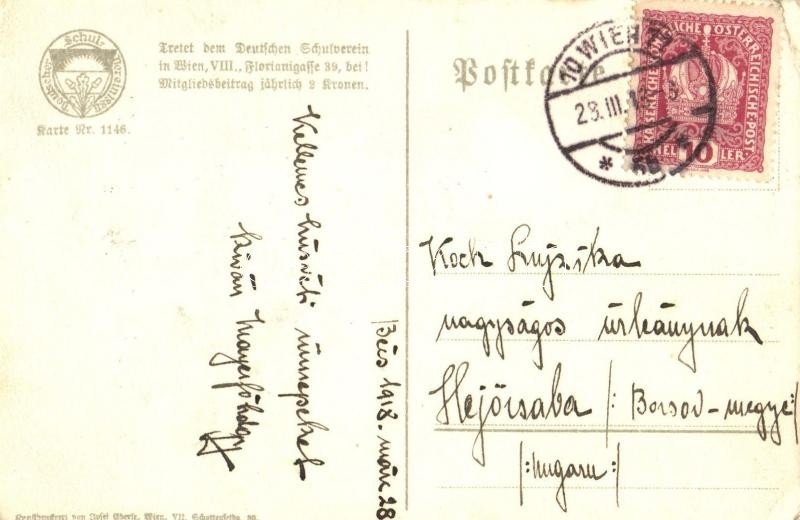 Schul
Deutscher
Verein 1880
Karte Nr. 1146.
Tretet dem Deutschen Schulverein
in Wien, VIII., Florianigasse 39, bei!
Mitgliedsbeitrag jährlich 2 Kronen.
Postkarte
10 WIEN
28.III.18
KAISERLICHE KÖNIGLICHE ÖSTERREICHISCHE POST
HELLER 10
Kellemes húsvéti ünnepeket
kíván
Bécs 1918. márc 28
Koch Lujzika
nagyságos úrleánynak
Hejőcsaba /: Borsod-megye:/
/: Ungarn:/
Kunstdruckerei von Josef Eberle, Wien, VII. Schottenfeldg.